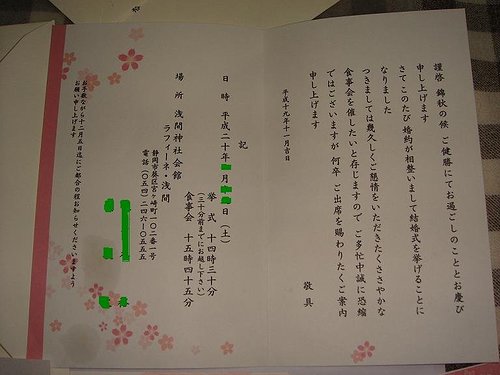 謹啓 錦秋の候 ご健勝にてお過ごしのこととお慶び
申し上げます
さて このたび 婚約が相整いまして結婚式を挙げることに
なりました
つきましては幾久しくご懇情をいただきたくささやかな
食事会を催したいと存じますので ご多忙中誠に恐縮
ではございますが 何卒 ご出席を賜わりたくご案内
申し上げます
敬具
平成十九年十一月吉日
記
日時 平成二十年 月 日(土)
挙式 十四時三十分
(三十分前までにお越し下さい)
食事会 十五時四十五分
場所 浅間神社会館
ラフィーネ・浅間
静岡市葵区宮ヶ崎町一〇二番一号
電話(〇五四)二四六-〇五五五
お手数ながら十二月五日迄にご都合の程お知らせくださいますよう
お願い申し上げます